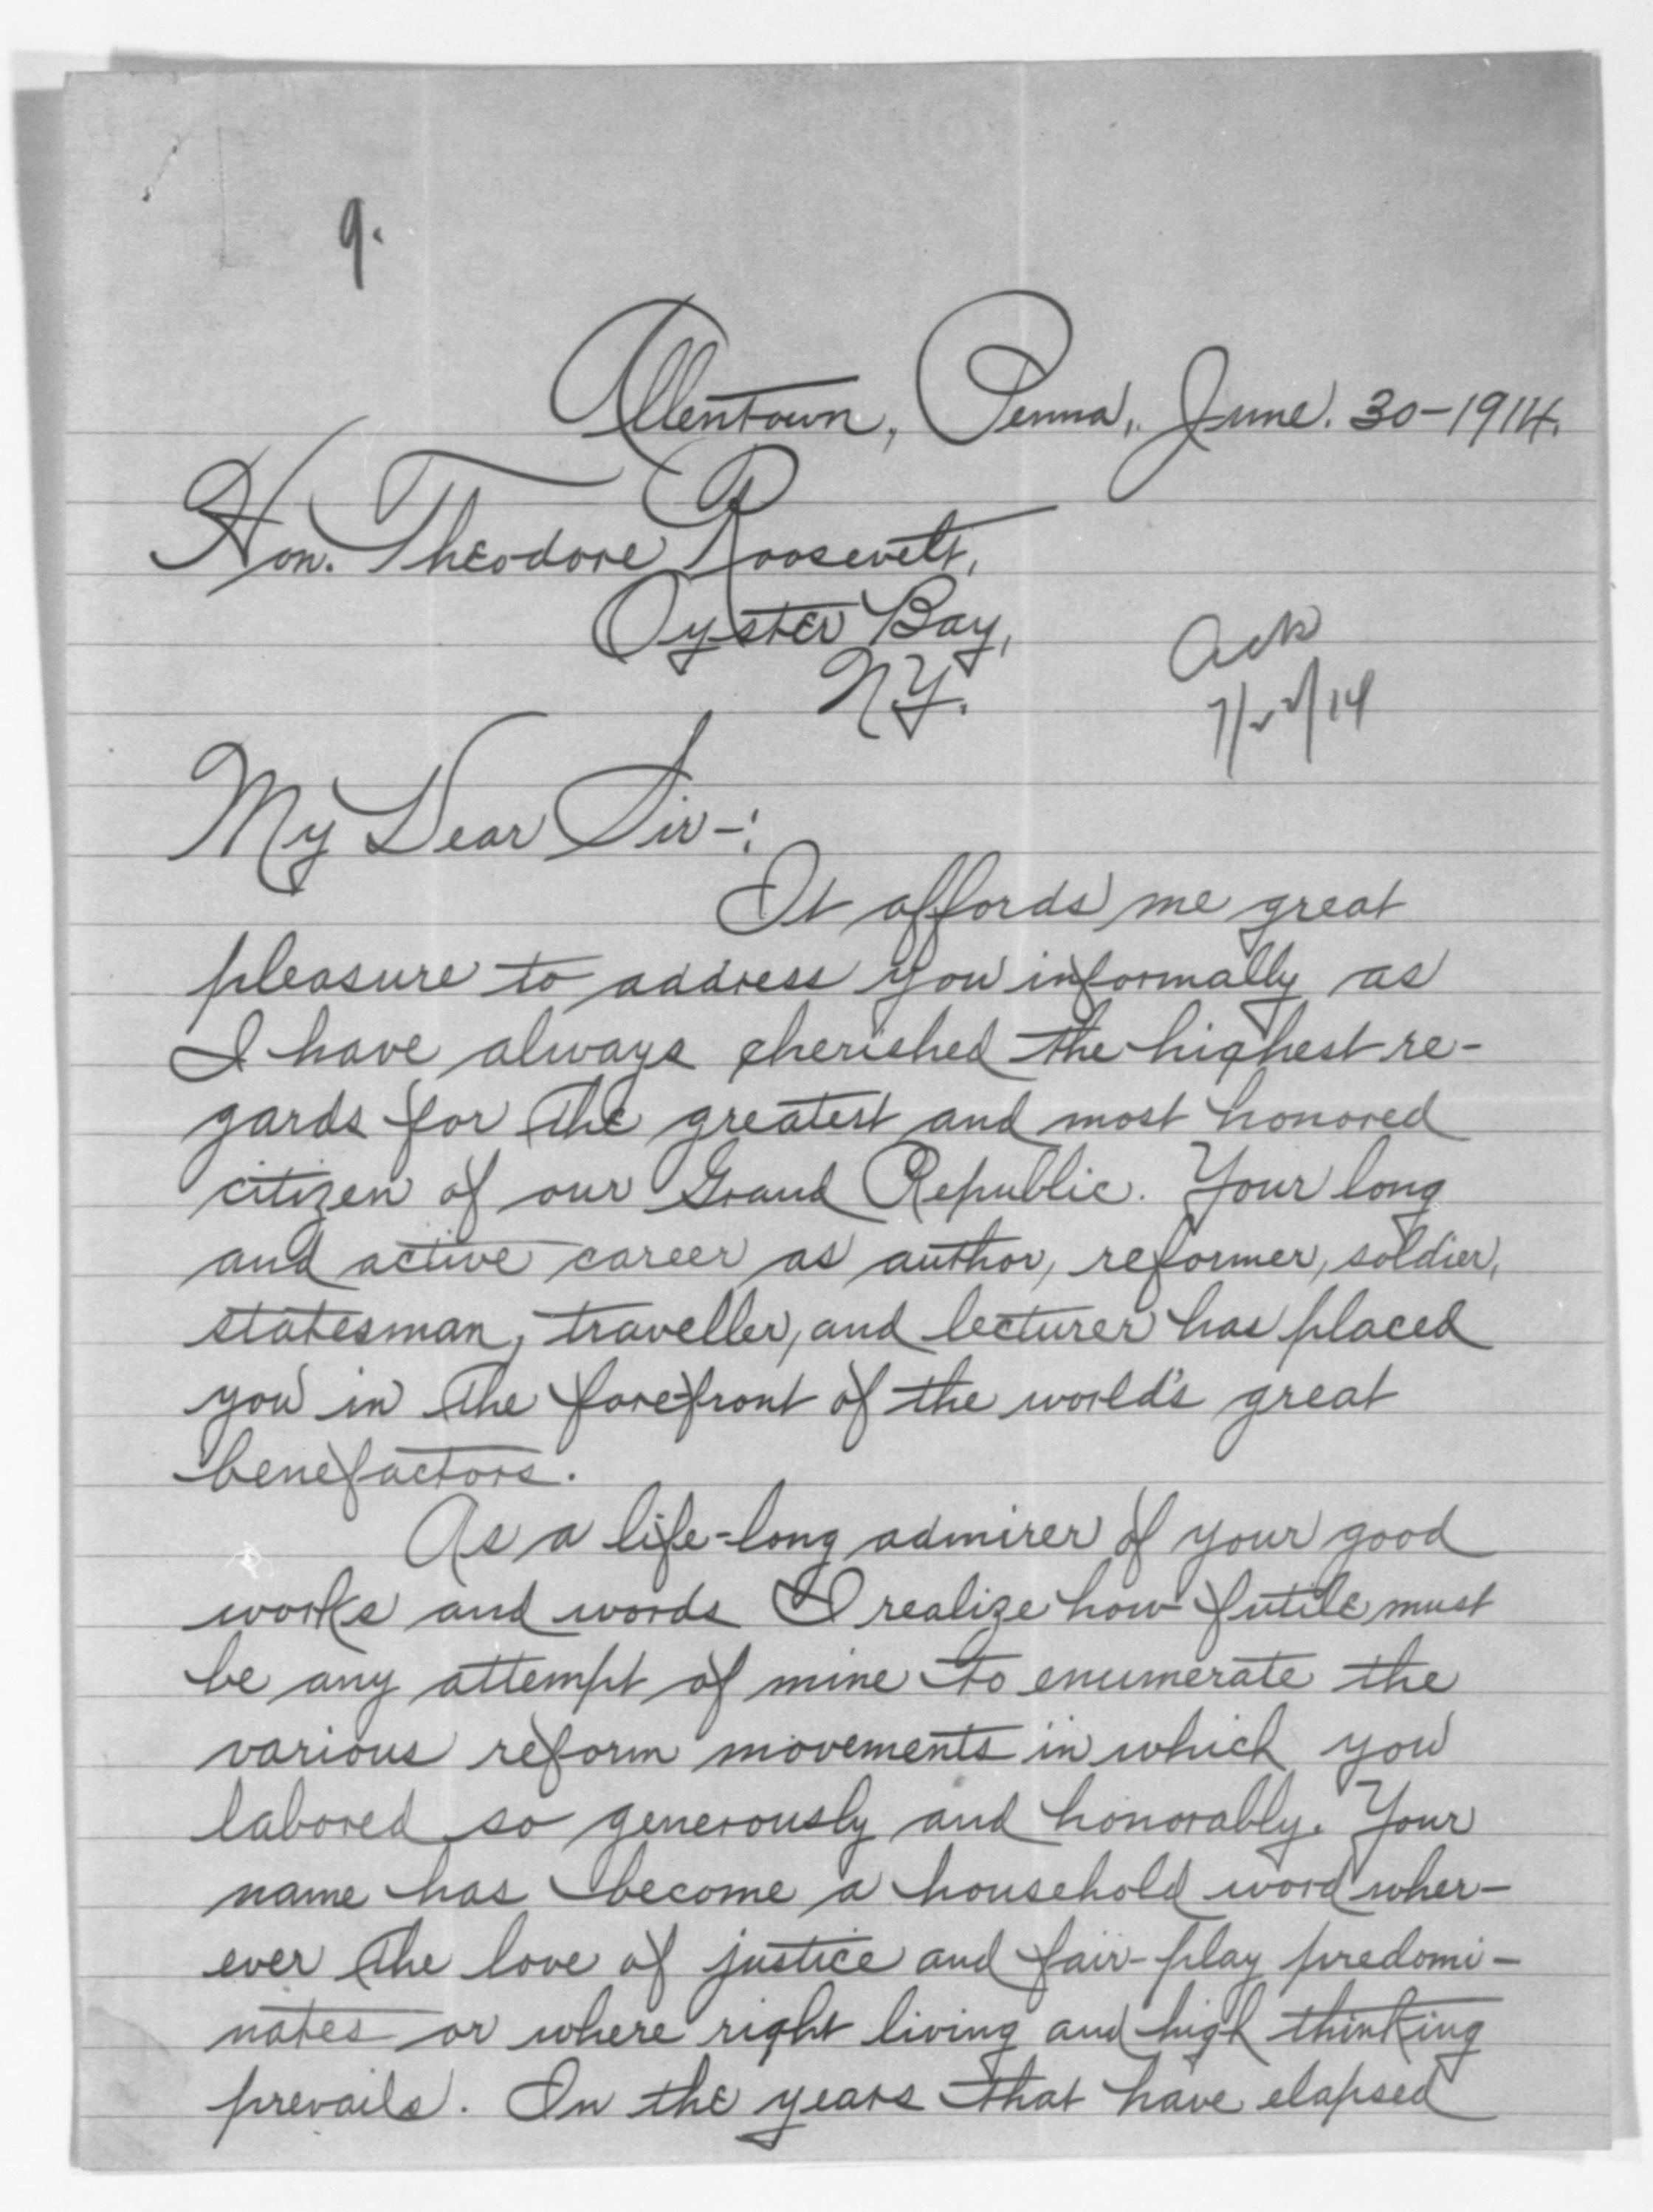 9.
Allentown, Penna,. June. 30-1914.
Hon. Theodore Roosevelt,
Oyster Bay,
N.Y.
Ack
7/22/14
My Dear Sir-:
It affords me great
pleasure to address you informally as
I have always cherished the highest re-
gards for the greatest and most honored
citizen of our Grand Republic. Your long
and active career as author, reformer, soldier,
statesman, traveller, and lecturer has placed
you in the forefront of the world's great
benefactors.
As a life-long admirer of your good
works and words I realize how futile must
be any attempt of mine to enumerate the
various reform movements in which you
labored so generously and honorably. Your
name has become a household word wher-
ever the love of justice and fair-play predomi-
nates or where right living and high thinking
prevails. In the years that have elapsed